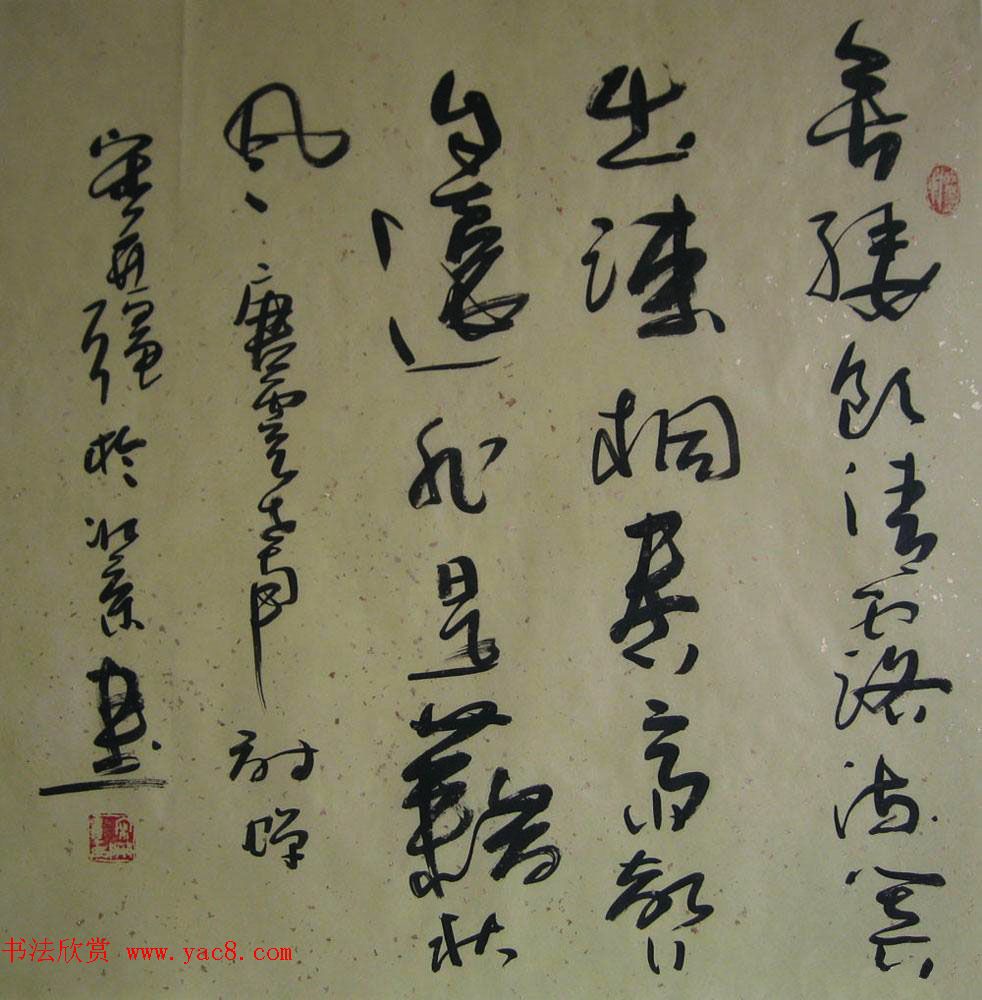 垂緌飲清露流響
出疎桐居高聲
自遠非是藉秋
風 唐虞世南 詩蟬
宋再彊於書
书法欣赏 www.yac8.com